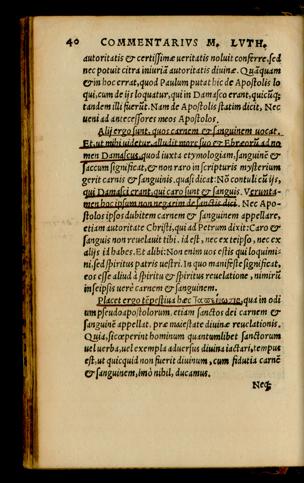 40 COMMENTARIVS M. LVTH.
autoritatis & certissimæ ueritatis noluit conferre, sed
nec potuit citra iniuriā autoritatis diuinæ. Quāquam
& in hoc errat, quod Paulum putat hic de Apostolis lo
qui, cum de ijs loquatur, qui in Damasco erant, quicūq;
tandem illi fuerūt. Nam de Apostolis statim dicit, Nec
ueni ad antecessores meos Apostolos.
Alij ergo sunt, quos carnem & sanguinem uocat.
Et, ut mihi uidetur, alludit more suo & Ebræorū ad no
men Damascus, quod iuxta etymologiam, sanguinē &
saccum significat, & non raro in scripturis mysterium
gerit carnis & sanguinis, quasi dicat: Nō contuli cū ijs,
qui Damasci erant, qui caro sunt & sanguis. Verunta
men hoc ipsum non negarim de sanctis dici. Nec Apo-
stolos ipsos dubitem carnem & sanguinem appellare,
etiam autoritate Christi, qui ad Petrum dixit: Caro &
sanguis non reuelauit tibi. id est, nec ex teipso, nec ex
alijs id habes. Et alibi: Non enim uos estis qui loquimi-
ni, sed spiritus patris uestri. In quo manifeste significat,
eos esse aliud à spiritu & spiritus reuelatione, nimirū
in seipsis uere carnem & sanguinem.
Placet ergo tēpestiua hæc qua in odi
um pseudoapostolorum, etiam sanctos dei carnem &
sanguinē appellat. præ maiestate diuinæ reuelationis.
Quia, si cœperint hominum quantumlibet sanctorum
uel uerba, uel exempla aduersus diuina iactari, tempus
est, ut quicquid non fuerit diuinum, cum fiducia carnē
& sanguinem, imò nihil, ducamus.
Neq;